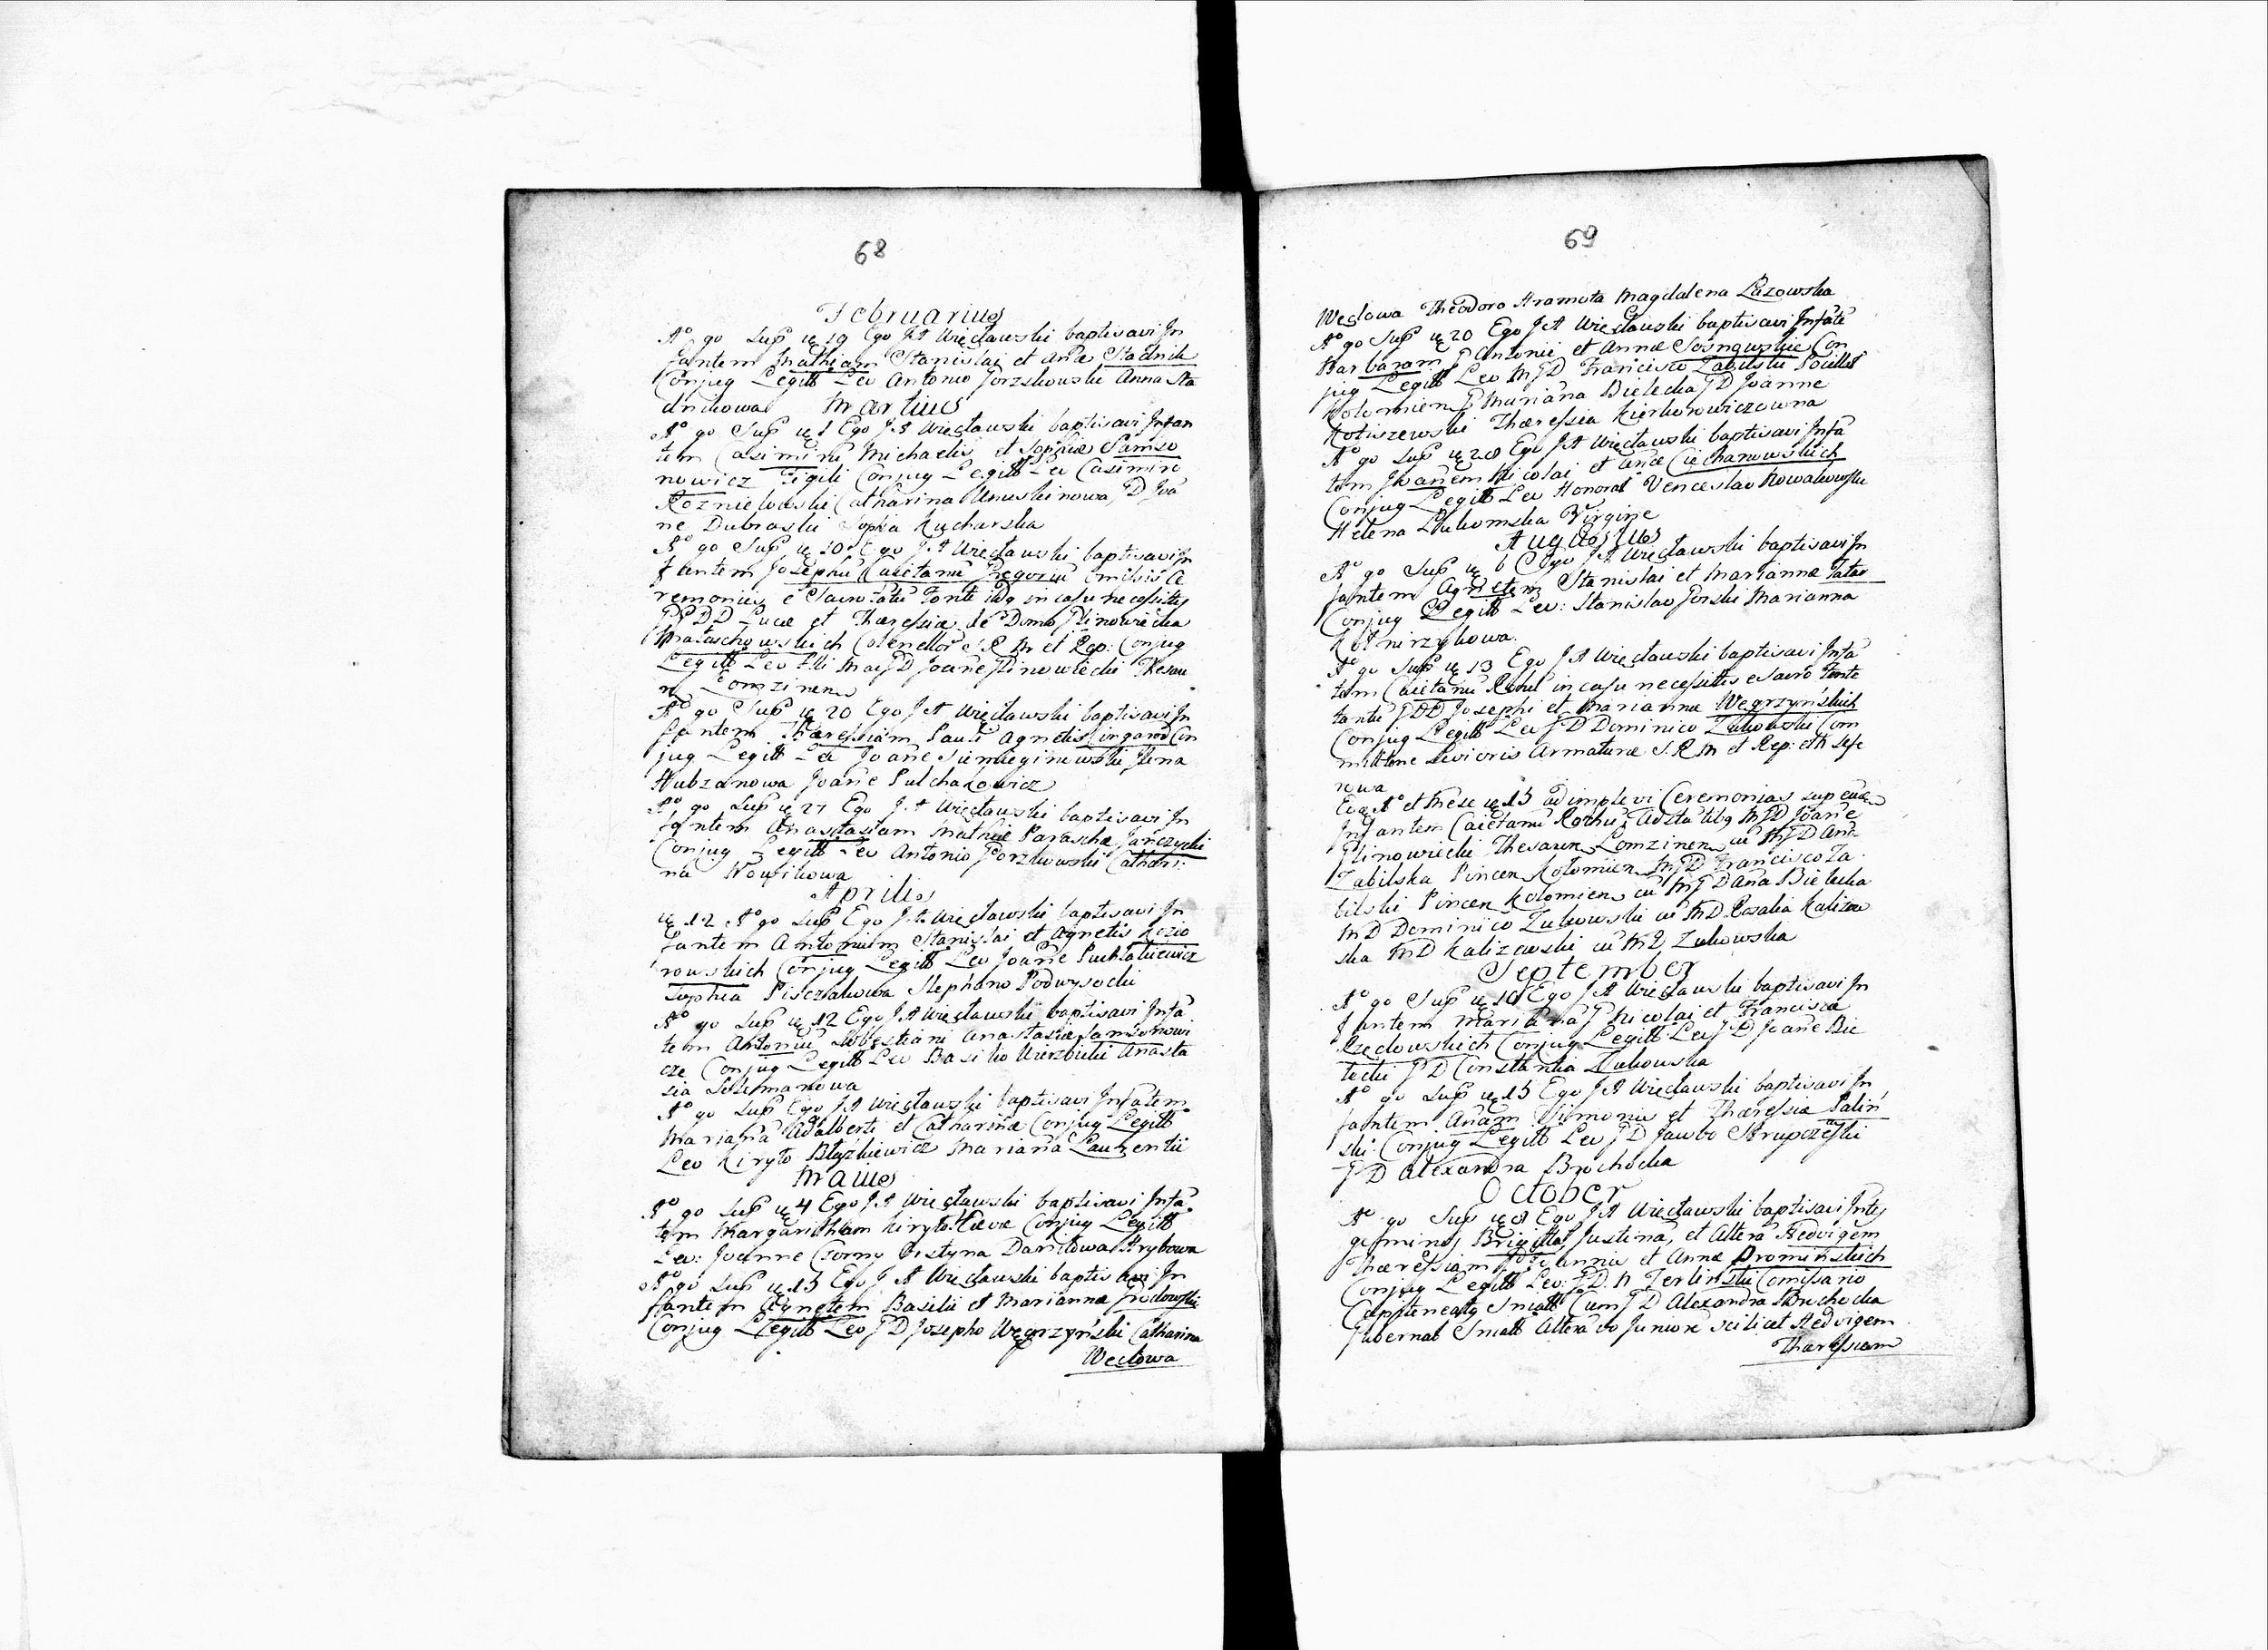 68
Februarius
Aº qo Sup 19 Ego J A Więcławski baptisavi In
fantem Mathiam Stanislai et Añæ Stadnik
Conjug Legitt Lev Antonio Gorzkowski Anna Sta
dnikowa Martius
Aº qo Sup 1 Ego J A Więcławski baptisavi Infan
tem Casimirũ Michaelis et Sophiæ Samso
nowicz Figuli Conjug Legitt Lev Casimiro
Rozniełowski Catharina D Joã
ne Dubraski Sophia Kucharska
Aº qo Sup 10 Ego J A Więcławski baptisavi In
fantem Josephũ Caietanũ Gregoriũ omissis Ce
remoniis e Sacro Fonte in casu necessitis
DD Lucæ et Thæressiæ de Domo Glinowiecka
Colenellor S R M et Rep: Conjug
Legitt Lev D Joañe Glinowiecki Thesau
r Lomzinen
Aº qo Sup 20 Ego J A Więcławski baptisavi In
fantem Thæressiam Pauli Agnetis Con
jug Legitt Lev Joañe Ilina
Hubzanowa Joañe Pulchakowicz
Aº qo Sup 27 Ego J A Więcławski baptisavi In
fantem Anastasiam Mathiæ Parascha Janczycki
Conjug Legitt Lev Antonio Gorzkowski Cathari:
na Nowikowa
Aprilis
12 Aº qo Sup Ego J A Więcławski baptisavi In
fantem Antonium Stanislai et Agnetis Kozio
rowskich Conjug Legitt Lev Joañe
Sophia Pisczakowa Stephano Podwysocki
Aº qo Sup 12 Ego J A Więcławski baptisavi Infã
tem Antoniũ Sebestiani Anastasiæ Samsonowi
cze Conjug Legitt Lev Basilio Wierzbicki Anasta
sia
Aº qo Sup Ego J A Więcławski baptisavi Infãtem
Mariañã Adalberti et Catharinæ Conjug Legitt
Lev Kiryło Błyźkiewicz Mariañã Laurentii
Maius
Aº qo Sup 4 Ego J A Więcławski baptisavi Infã
tem Margaritham Kiryło Conjug Legitt
Lev: Joanne Czorny Daniłowa Hrybowa
Aº qo Sup 13 Ego J A Więcławski baptisavi In
fantem Agnetem Basilii et Mariannæ
Conjug Legitt Lev J D Josepho Węgrzyński Catharina
Wecłowa
69
Wecłowa Theodoro Hramota Magdalena Łazowska
Aº qo Sup 20 Ego J A Więcławski baptisavi Infãte
Barbaram Antonii et Annæ Sosnowskie Con
jug Legitt Lev M J D Francisco Zabilski Pocillat
Kołomien Mariana Bielecka J D Joanne
Kotiszewski Thæressia Kierkorowiczowna
Aº qo Sup 28 Ego J A Więcławski baptisavi Infã
tem Joañem Nicolai et Añæ Ciechanowskich
Conjug Legitt Lev Honorat Venceslao Nowakowski
Helena Łukomska Virgine
Augustus
Aº qo Sup 6 Ego J A Więcławski baptisavi In
fantem Agnetem Stanislai et Mariannæ Tatar
Conjug Legitt Lev: Stanislao Gorski Marianna
Kołnirzykowa
Aº qo Sup 13 Ego J A Więcławski baptisavi Infã
tem Caietanũ in casu necessitis e Sacro Fonte
J DD Josephi et Marianna Węgrzyńskich
Conjug Legitt Lev J D Dominico Żukowski Com
militone Levioris Armaturæ S: R M et Rep:
nowa
Eoq Aº et Mese 15 adimplevi Ceremonias
Infantem Caietanũ Rochũ M J D Joañe
Glinowiecki Thesaur Lomzinen cũ M J D Añã
Zabilska Pincer Kołomien M J D Francisco Za
bilski Pincer Kolomien cũ M J D Añã Bielecka
M D Dominico Żukowski cũ M D Rosalia Kalizow
ska M D Kalizowski cũ M D Żukowska
September
Aº qo Sup 10 Ego J A Więcławski baptisavi In
fantem Mariañã Nicolai et Francisca
Rzędowskich Conjug Legitt Lev J D Joañe Bie
lecki J D Constantia Żukowska
Aº qo Sup 15 Ego J A Więcławski baptisavi In
fantem Añam Simonis et Thæressia Saliń
ski Conjug Legitt Lev J D Jacobo
J D Alexandra Brochocka
October
Aº qo Sup 8 Ego J A Więcławski baptisavi Intes
geminos Brigittã Justinã, et Alterã Hedvigem
Thæressiam Joannis et Annæ Promińskich
Conjug Legitt Lev: J D: N Zerliński Comissario
Cum J D Alexandra Brochocka
Gubernat Alterã vo Juniorẽ scilicet Hedvigem
Thæressiam